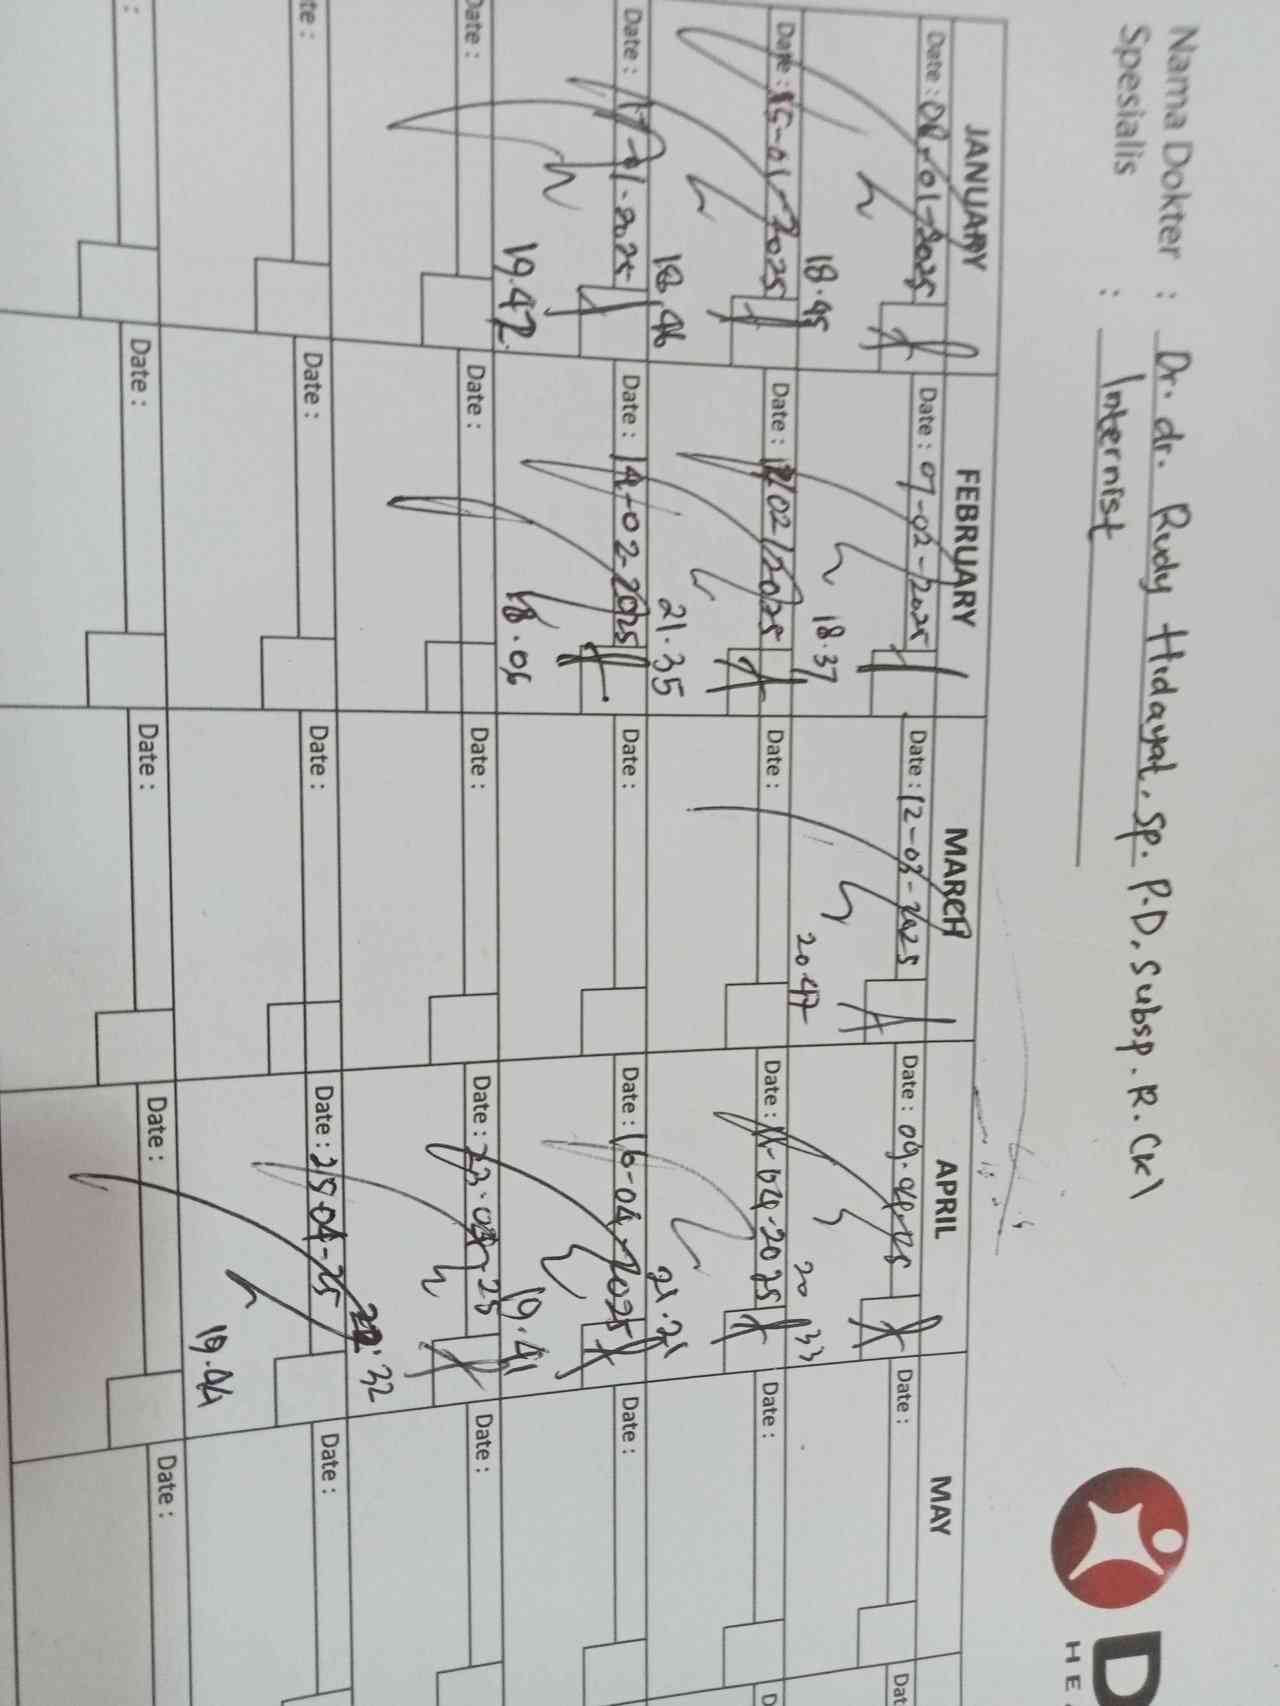 Nama Dokter : Dr. dr. Rudy Hidayat, Sp. P.D, Subsp. R. (K)
Spesialis : Internist
D
HE
JANUARY FEBRUARY MARCH APRIL MAY
Date : 08-01-2025 Date : 07-02-2025 Date : 12-03-2025 Date : 09.04.25 Date : Dat
18.45 18.37 20.47 20 33
Date : 15-01-2025 Date : 12/02/2025 Date : Date : 11-04-2025 Date : D
18.46 21.35 21.21
Date : 17-01-2025 Date : 14-02-2025 Date : Date : 16-04-2025 Date :
19.42 18.06 19.41
Date : Date : Date : Date : 23.04.25 Date :
32
te : Date : Date : Date : 25-04-25 Date :
19.04
: Date : Date : Date : Date :